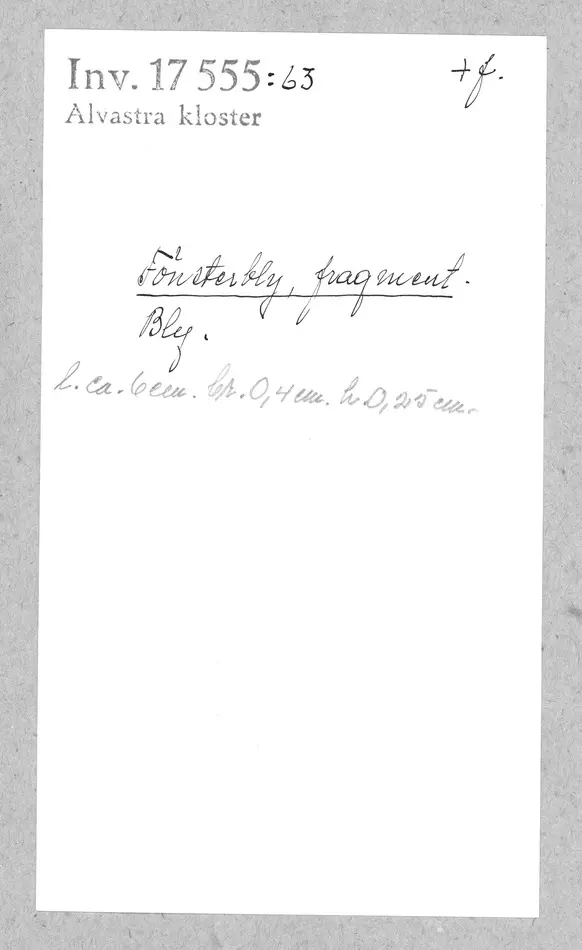 Inv. 17 555:63
+ f.
Alvastra kloster
Fönsterbly, fragment.
Bly.
l. ca. 6 cm. br. 0,4 cm. h 0,25 cm.